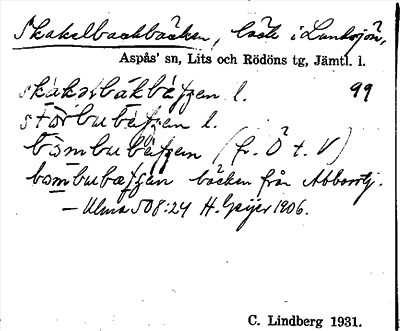 Skakelbackbäcken, bäck i Landsjön,
Aspås' sn, Lits och Rödöns tg, Jämtl. l.
skàkəlbàkbäʃʃen l. 99
stòrbubäʃʃen l.
bòmbubäʃʃen (fr. Ö t. V)
bombubæʃʃen bäcken från Abborrtj.
— Ulma 508:24 H. Geijer 1906.
C. Lindberg 1931.